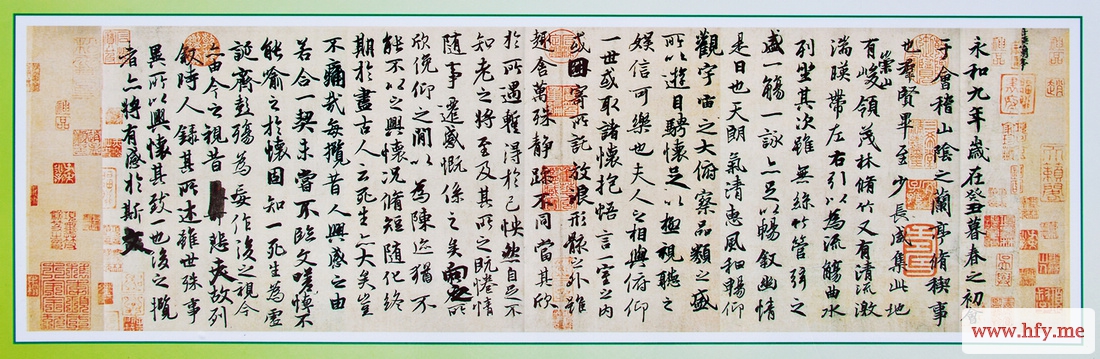 永和九年歲在癸丑暮春之初會
于會稽山陰之蘭亭脩稧事
也羣賢畢至少長咸集此地
有崇山峻領茂林脩竹又有清流激
湍暎帶左右引以為流觴曲水
列坐其次雖無絲竹管弦之
盛一觴一詠亦足以暢敘幽情
是日也天朗氣清惠風和暢仰
觀宇宙之大俯察品類之盛
所以遊目騁懷足以極視聽之
娛信可樂也夫人之相與俯仰
一世或取諸懷抱悟言一室之內
或因寄所託放浪形骸之外雖
趣舍萬殊靜躁不同當其欣
於所遇暫得於己怏然自足不
知老之將至及其所之既惓情
隨事遷感慨係之矣向之所
欣俛仰之閒以為陳迹猶不
能不以之興懷況脩短隨化終
期於盡古人云死生亦大矣豈
不痛哉每攬昔人興感之由
若合一契未嘗不臨文嗟悼不
能喻之於懷固知一死生為虛
誕齊彭殤為妄作後之視今
亦由今之視昔悲夫故列
敘時人錄其所述雖世殊事
異所以興懷其致一也後之攬
者亦將有感於斯文
www.hfy.me